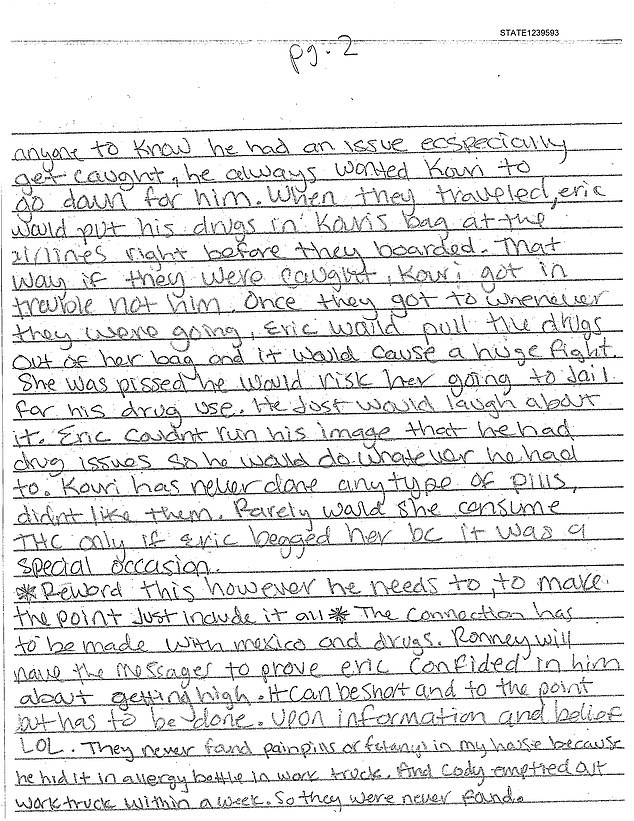 STATE1239593
pg. 2
anyone to know he had an issue ecspecially
get caught, he always wanted Kouri to
go down for him. When they traveled, eric
would put his drugs in Kouris bag at the
airlines right before they boarded. That
way if they were caught, Kouri got in
trouble not him. Once they got to whenever
they were going, Eric would pull the drugs
out of her bag and it would cause a huge fight.
She was pissed he would risk her going to jail
for his drug use. He just would laugh about
it. Eric couldnt run his image that he had
drug issues so he would do whatever he had
to. Kouri has never done any type of pills,
didnt like them. Rarely would she consume
THC only if Eric begged her bc it was a
special occasion.
*Reword this however he needs to, to make
the point Just include it all* The connection has
to be made with mexico and drugs. Ronney will
have the messages to prove eric confided in him
about getting high. It can be short and to the point
but has to be done. Upon information and belief
LOL. They never found painpills or fetanyl in my house because
he hid it in allergy bottle in work truck. And Cody emptied out
work truck within a week. So they were never found.